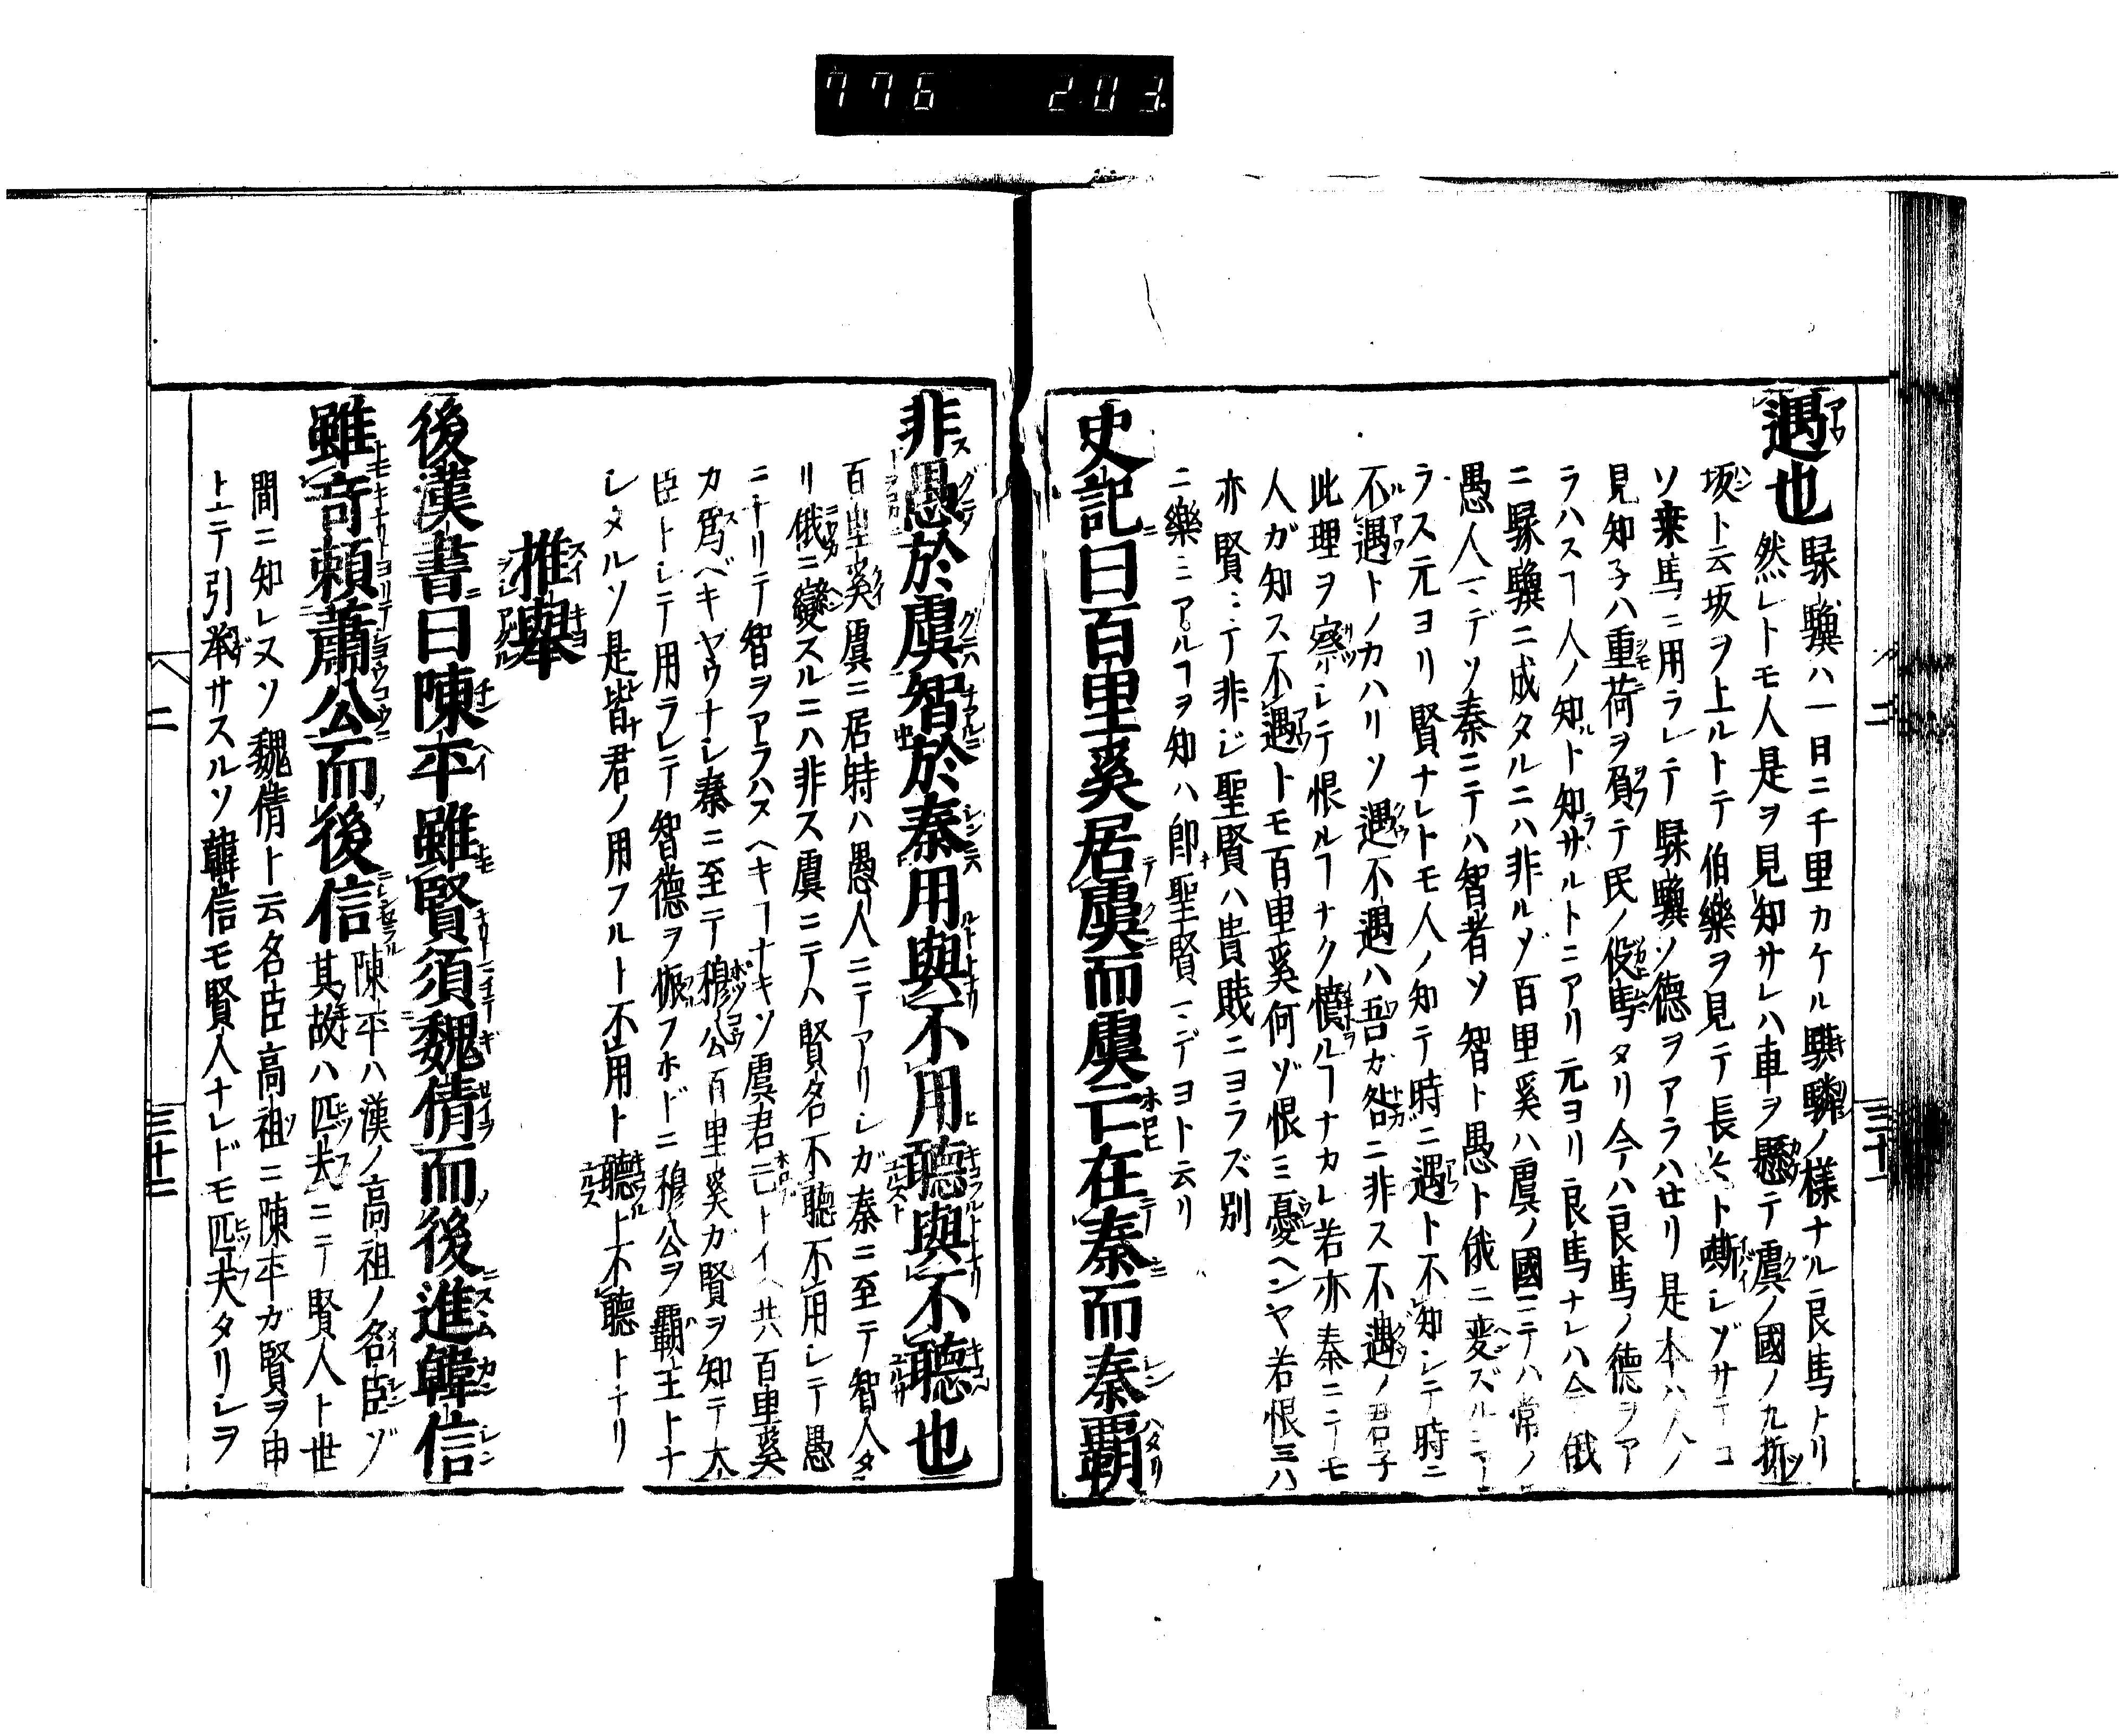 776 203
遇也騄驥ハ一日ニ千里カケル騏驎ノ樣ナル良馬トリ
然レトモ人是ヲ見知サレハ車ヲ懸テ虞ノ國ノ九折
坂ト云坂ヲ上ルトテ伯樂ヲ見テ長ト嘶レゾサテコ
ソ乗馬ニ用ラレテ騄驥ソ德ヲアラハせリ是本ハ人ノ
見知子ハ重荷ヲ負テ民ノ役馬タリ今ハ良馬ノ德ヲア
ラハスヿ人ノ知ト知サルトニアリ元ヨリ良馬ナレハ今俄
ニ騄驥ニ成タルニハ非ルゾ百里奚ハ虞ノ國ニテハ常ノ
愚人マデソ秦ニテハ智者ソ智ト愚ト俄ニ変ズルニア
ラス元ヨリ賢ナレトモ人ノ知テ時ニ遇ト不知シテ時ニ
不遇トノカハリソ遇不遇ハ吾カ咎ニ非ス不遇ノ君子
此理ヲ察シテ恨ルヿナク憤ルヿナカレ若亦秦ニテモ
人ガ知ス不遇トモ百里奚何ゾ恨ミ憂ヘンヤ若恨ミハ
亦賢ニテ非ジ聖賢ハ貴賎ニヨラズ別
ニ樂ミアルヿヲ知ハ即聖賢マデヨト云リ
史記曰百里奚居虞而虞亡在秦而秦覇
二
三十一
非愚於虞智於秦用與不用聽與不聽也
百里奚虞ニ居時ハ愚人ニテアリシガ秦ニ至テ智人タ
リ俄ニ變スルニハ非ス虞ニテハ賢名不聽不用シテ愚
ニナリテ智ヲアラハスヘキヿナキソ虞君亡トイヘ共百里奚
カ爲ベキヤウナレ秦ニ至テ穆公百里奚ガ賢ヲ知テ大
臣トレテ用ラレテ智德ヲ振フホドニ穆公ヲ覇王トナ
レメルソ是皆君ノ用フルト不用ト聽ト不聽トナリ
推舉
後漢書曰陳平雖賢須魏倩而後進韓信
雖奇頼蕭公而後信陳平ハ漢ノ高祖ノ名臣ゾ
其故ハ匹夫ニテ賢人ト世
間ニ知レヌソ魏倩ト云名臣高祖ニ陳平ガ賢ヲ申
上テ引挙サスルソ韓信モ賢人ナレドモ匹夫タリレヲ
二
三十二